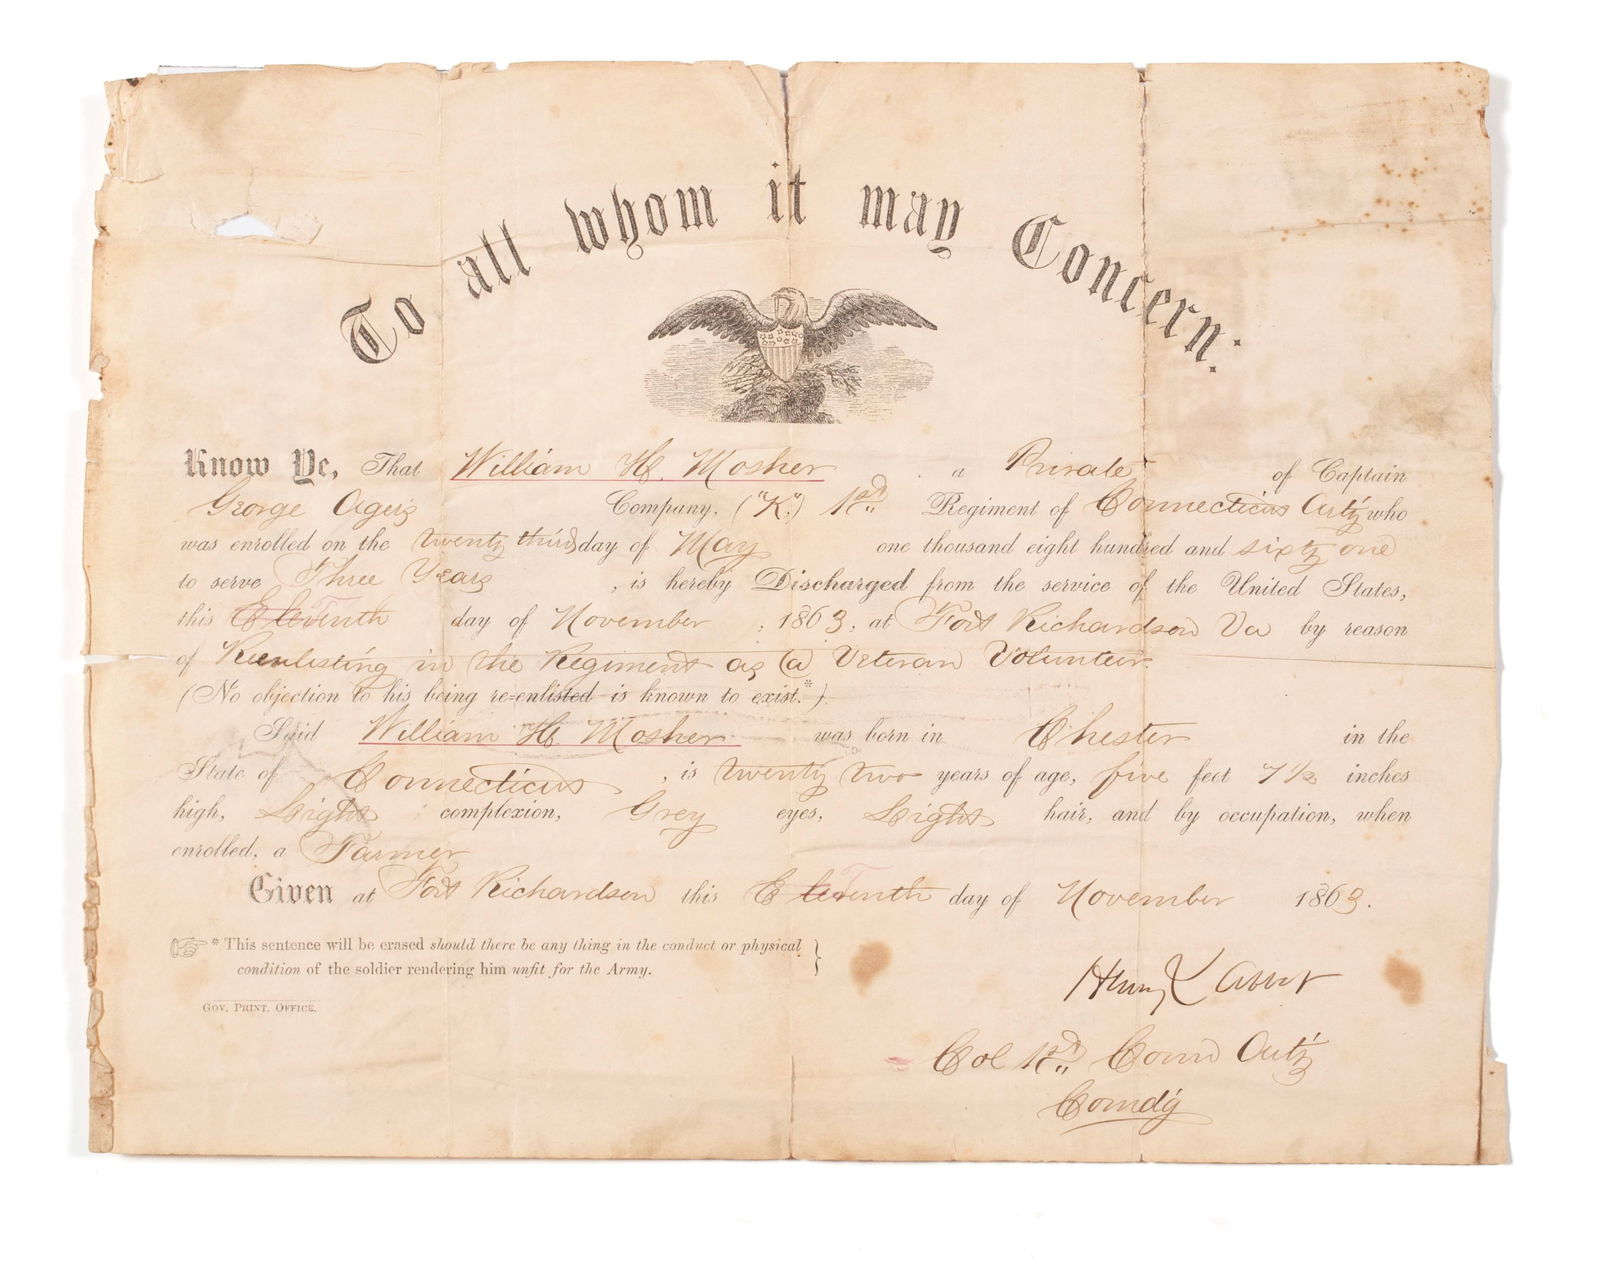 To all whom it may Concern:
Know Ye, That William H. Mosher a Private of Captain
George Agers Company, ("K.") 1st Regiment of Connecticut Arty who
was enrolled on the twenty third day of May one thousand eight hundred and sixty one
to serve Three Years, is hereby Discharged from the service of the United States,
this day of November, 1863, at Fort Richardson Va by reason
of Reenlisting in the Regiment as (a) Veteran Volunteer
(No objection to his being re-enlisted is known to exist.*)
Said William H. Mosher was born in Chester in the
State of Connecticut, is twenty two years of age, five feet 7½ inches
high, Light complexion, Grey eyes, Light hair, and by occupation, when
enrolled, a Farmer
Given at Fort Richardson this day of November 1863.
* This sentence will be erased should there be any thing in the conduct or physical
condition of the soldier rendering him unfit for the Army.
Gov. Print. Office.
Henry L Abbot
Col 1st Conn Arty
Comdg